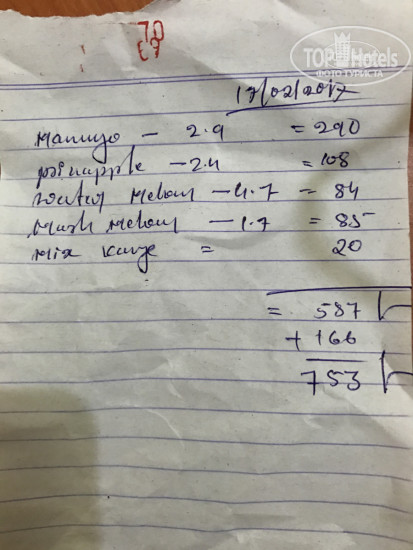 70
TOPHotels
ФОТО ТУРИСТА
17/02/2017
manngo - 2.9 = 290
painapple - 2.4 = 108
watej melon - 4.7 = 84
mush melon - 1.7 = 85
mix = 20
= 587
+ 166
753